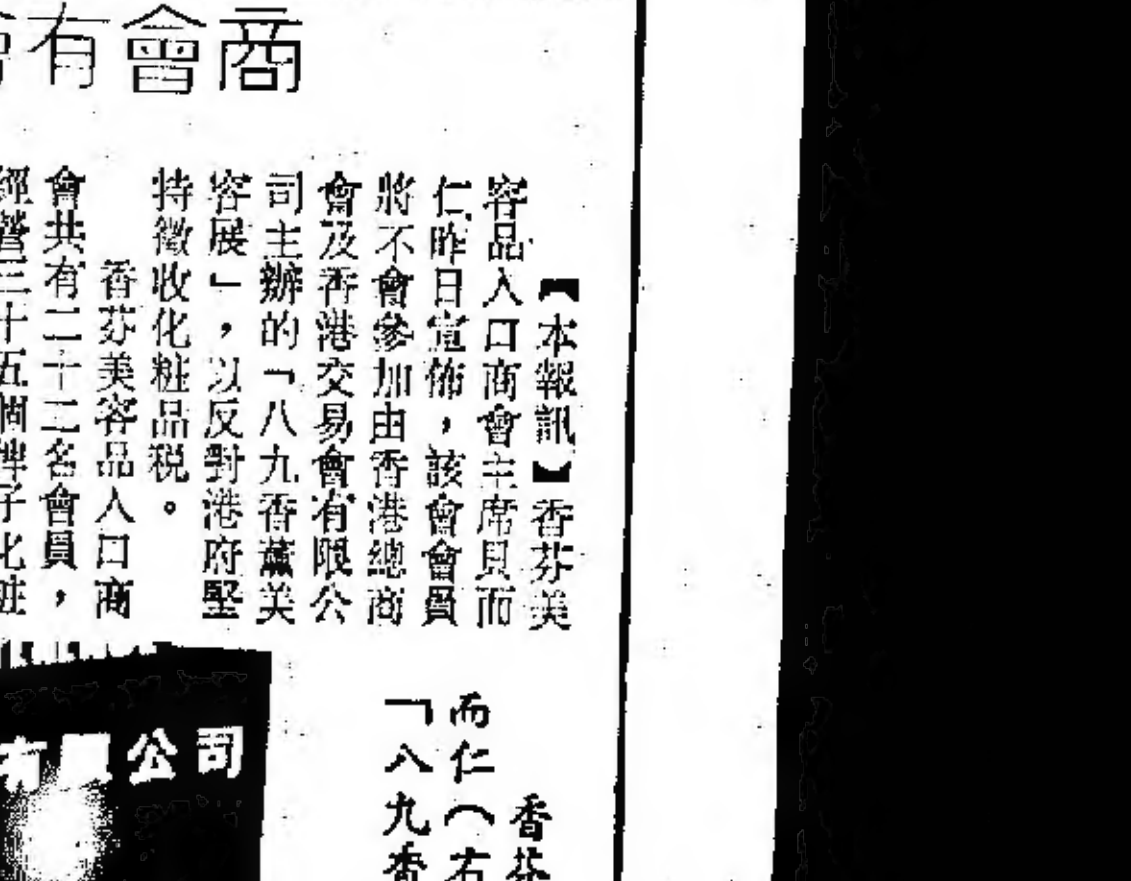 商會有會
【本報訊】香芬美
容品入口商會主席貝而
仁昨日宣佈，該會會員
將不會參加由香港總商
會及香港交易會有限公
司主辦的「八九香薰美
容展」，以反對港府堅
持徵收化粧品税。
香芬美容品入口商
會共有二十二名會員，
經營三十五個牌子化粧
香芬
而仁（右
「八九香
有限公司